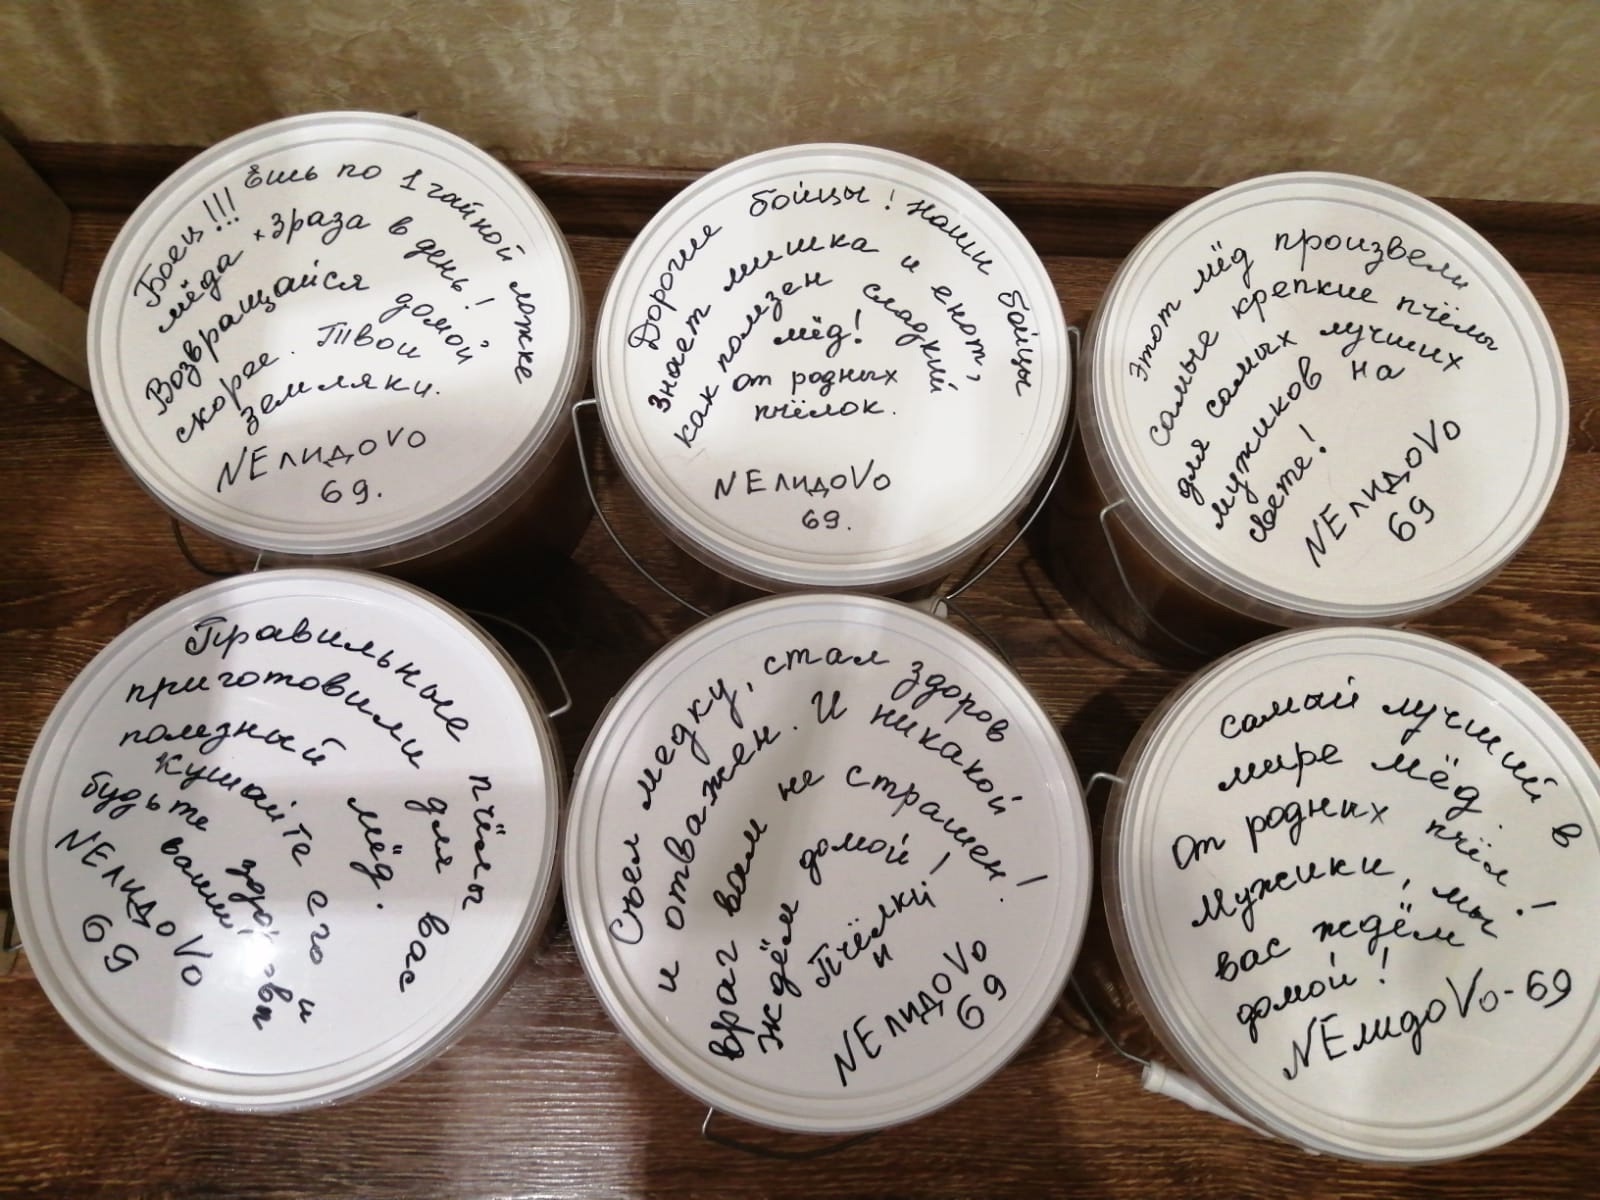 Боец!!! Ешь по 1 чайной ложке
мёда х 3 раза в день!
Возвращайся домой
скорее. Твои
земляки.
NEлидоVо
69.
Дорогие бойцы! Наши бойцы
Знает мишка и енот,
как полезен сладкий
мёд!
От родных
пчёлок.
NEлидоVо
69.
Этот мёд произвели
самые крепкие пчёлы
для самых лучших
мужиков на
свете!
NEлидоVо
69
Правильные пчёлы
приготовили для вас
полезный мёд.
Кушайте его и
будьте здоровы
ваши
NEлидоVо
69
Съел медку, стал здоров
и отважен. И никакой
враг вам не страшен!
Ждём домой!
Пчёлки
и
NEлидоVо
69
Самый лучший в
мире мёд.
От родных пчёл!
Мужики, мы
вас ждём
домой!
NEлидоVо-69